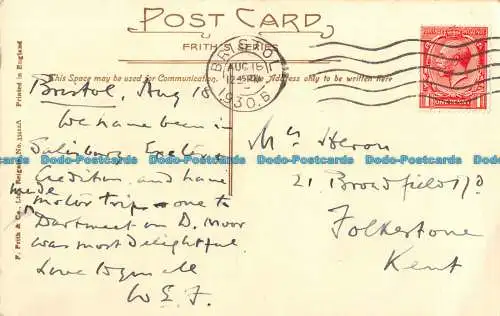 POST CARD
FRITH'S SERIES
This Space may be used for Communication. The Address only to be written here
BRISTOL
AUG 18
12.45 PM
1930
Bristol, Aug 18
We have been in
Salisbury Exeter
Crediton, and have
made
motor trips one to
Dartmeet on D. Moor
was most delightful.
Love to you all
W E F.
Mrs Heron
21 Broadfield Rd
Folkestone
Kent
F. Frith & Co., Ltd., Reigate, No.
Printed in England
ONE PENNY
Dodo-Postcards Dodo-Postcards Dodo-Postcards
Dodo-Postcards Dodo-Postcards Dodo-Postcards